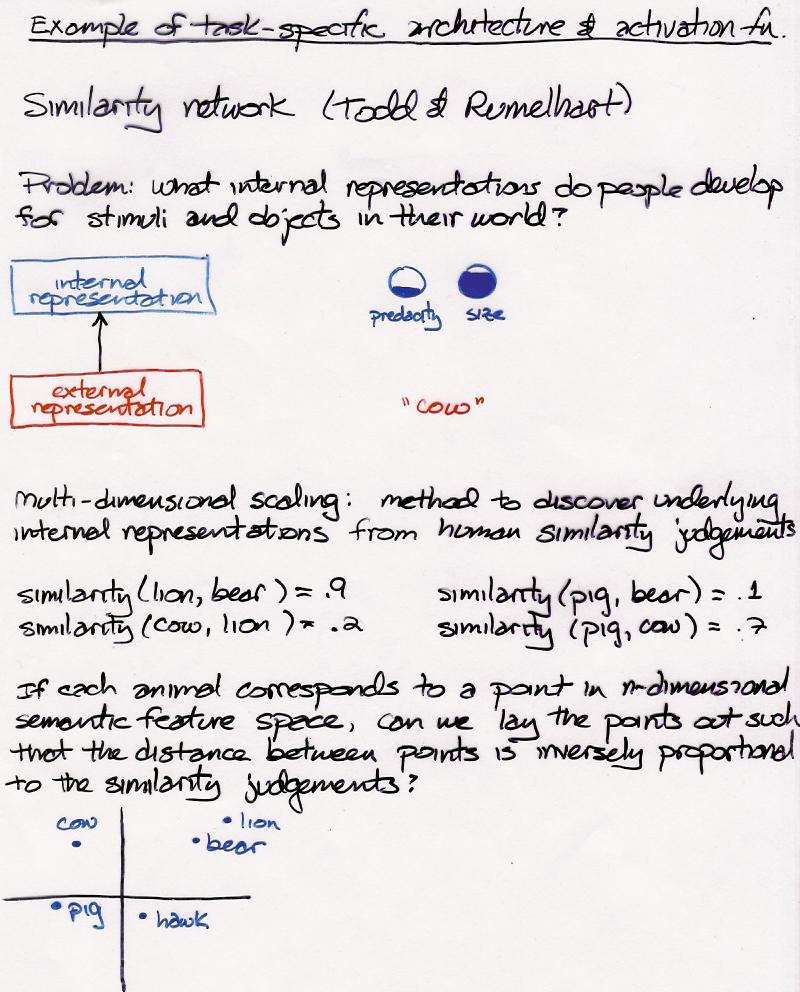 Example of task-specific architecture & activation fn.
Similarity network (Todd & Rumelhart)
Problem: what internal representations do people develop
for stimuli and objects in their world?
internal
representation
predacity size
external
representation
"cow"
Multi-dimensional scaling: method to discover underlying
internal representations from human similarity judgements
similarity (lion, bear) = .9 similarity (pig, bear) = .1
similarity (cow, lion) = .2 similarity (pig, cow) = .7
If each animal corresponds to a point in n-dimensional
semantic feature space, can we lay the points out such
that the distance between points is inversely proportional
to the similarity judgements?
cow lion
bear
pig hawk